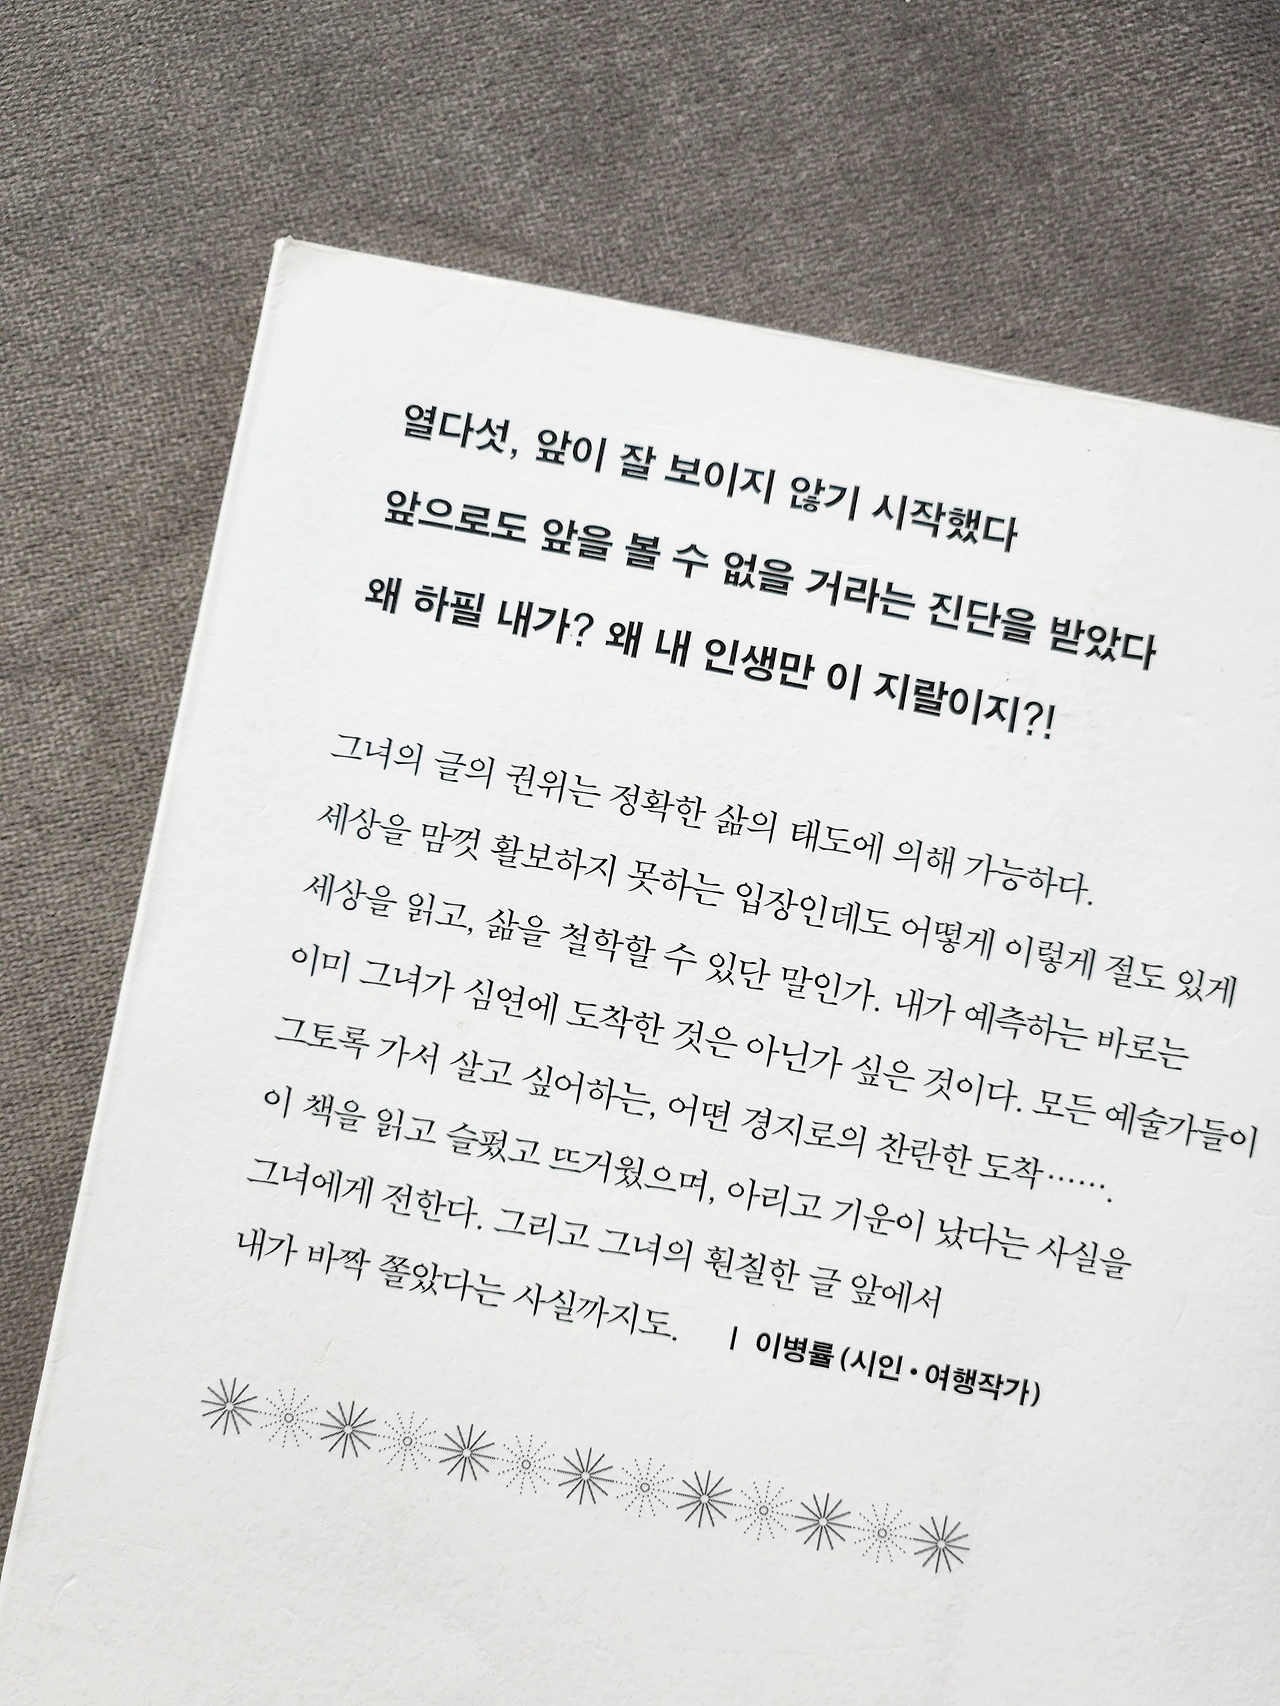 열다섯, 앞이 잘 보이지 않기 시작했다
앞으로도 앞을 볼 수 없을 거라는 진단을 받았다
왜 하필 내가? 왜 내 인생만 이 지랄이지?!
그녀의 글의 권위는 정확한 삶의 태도에 의해 가능하다.
세상을 맘껏 활보하지 못하는 입장인데도 어떻게 이렇게 절도 있게
세상을 읽고, 삶을 철학할 수 있단 말인가. 내가 예측하는 바로는
이미 그녀가 심연에 도착한 것은 아닌가 싶은 것이다. 모든 예술가들이
그토록 가서 살고 싶어하는, 어떤 경지로의 찬란한 도착…….
이 책을 읽고 슬펐고 뜨거웠으며, 아리고 기운이 났다는 사실을
그녀에게 전한다. 그리고 그녀의 훤칠한 글 앞에서
내가 바짝 쫄았다는 사실까지도.
| 이병률(시인·여행작가)